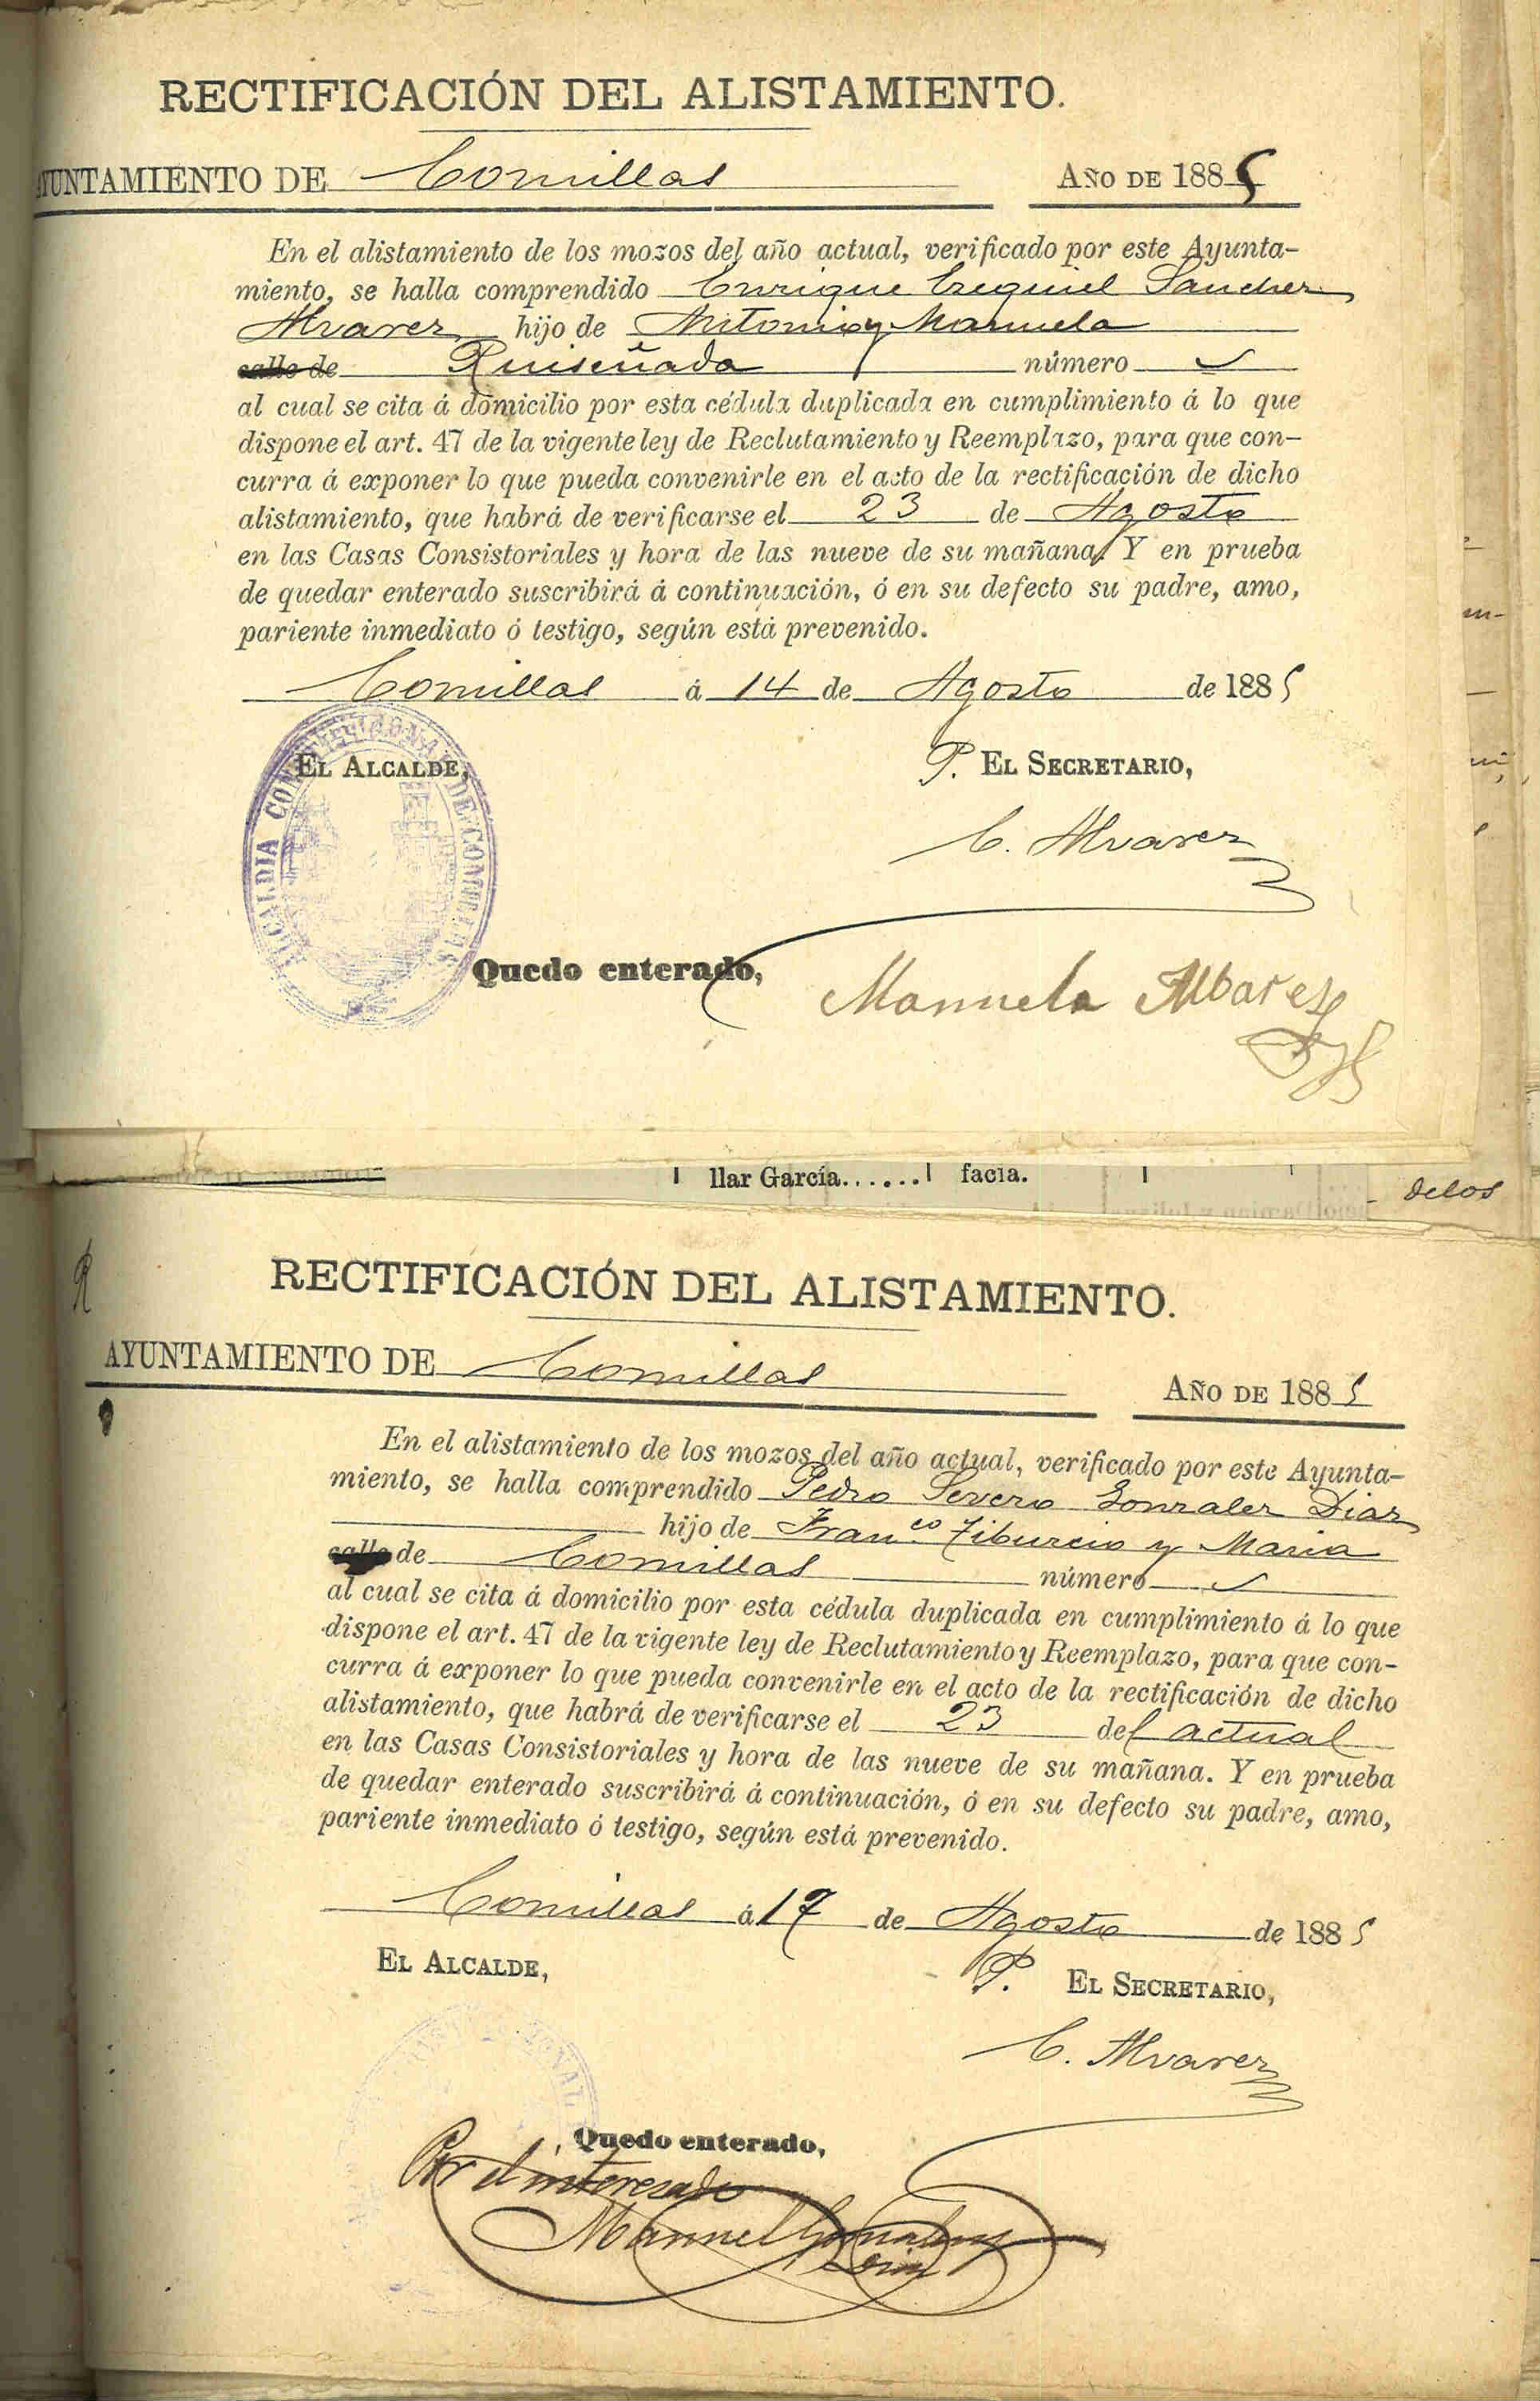 RECTIFICACIÓN DEL ALISTAMIENTO.
AYUNTAMIENTO DE Comillas AÑO DE 1885
En el alistamiento de los mozos del año actual, verificado por este Ayunta-
miento, se halla comprendido Enrique Ezequiel Sanchez
Alvarez hijo de Antonio y Manuela
calle de Ruiseñada número
al cual se cita á domicilio por esta cédula duplicada en cumplimiento á lo que
dispone el art. 47 de la vigente ley de Reclutamiento y Reemplazo, para que con-
curra á exponer lo que pueda convenirle en el acto de la rectificación de dicho
alistamiento, que habrá de verificarse el 23 de Agosto
en las Casas Consistoriales y hora de las nueve de su mañana. Y en prueba
de quedar enterado suscribirá á continuación, ó en su defecto su padre, amo,
pariente inmediato ó testigo, según está prevenido.
Comillas á 14 de Agosto de 1885
EL ALCALDE, P. EL SECRETARIO,
ALCALDIA CONSTITUCIONAL DE COMILLAS
C. Alvarez
Quedo enterado,
Manuela Albarez
llar García...... facia.
delos
RECTIFICACIÓN DEL ALISTAMIENTO.
AYUNTAMIENTO DE Comillas AÑO DE 1885
En el alistamiento de los mozos del año actual, verificado por este Ayunta-
miento, se halla comprendido Pedro Severo Gonzalez Diaz
hijo de Fran.co Tiburcio y Maria
calle de Comillas número
al cual se cita á domicilio por esta cédula duplicada en cumplimiento á lo que
dispone el art. 47 de la vigente ley de Reclutamiento y Reemplazo, para que con-
curra á exponer lo que pueda convenirle en el acto de la rectificación de dicho
alistamiento, que habrá de verificarse el 23 del actual
en las Casas Consistoriales y hora de las nueve de su mañana. Y en prueba
de quedar enterado suscribirá á continuación, ó en su defecto su padre, amo,
pariente inmediato ó testigo, según está prevenido.
Comillas á 17 de Agosto de 1885
EL ALCALDE, P. EL SECRETARIO,
C. Alvarez
Quedo enterado,
Por el interesado
Manuel Gonzalez
Diaz